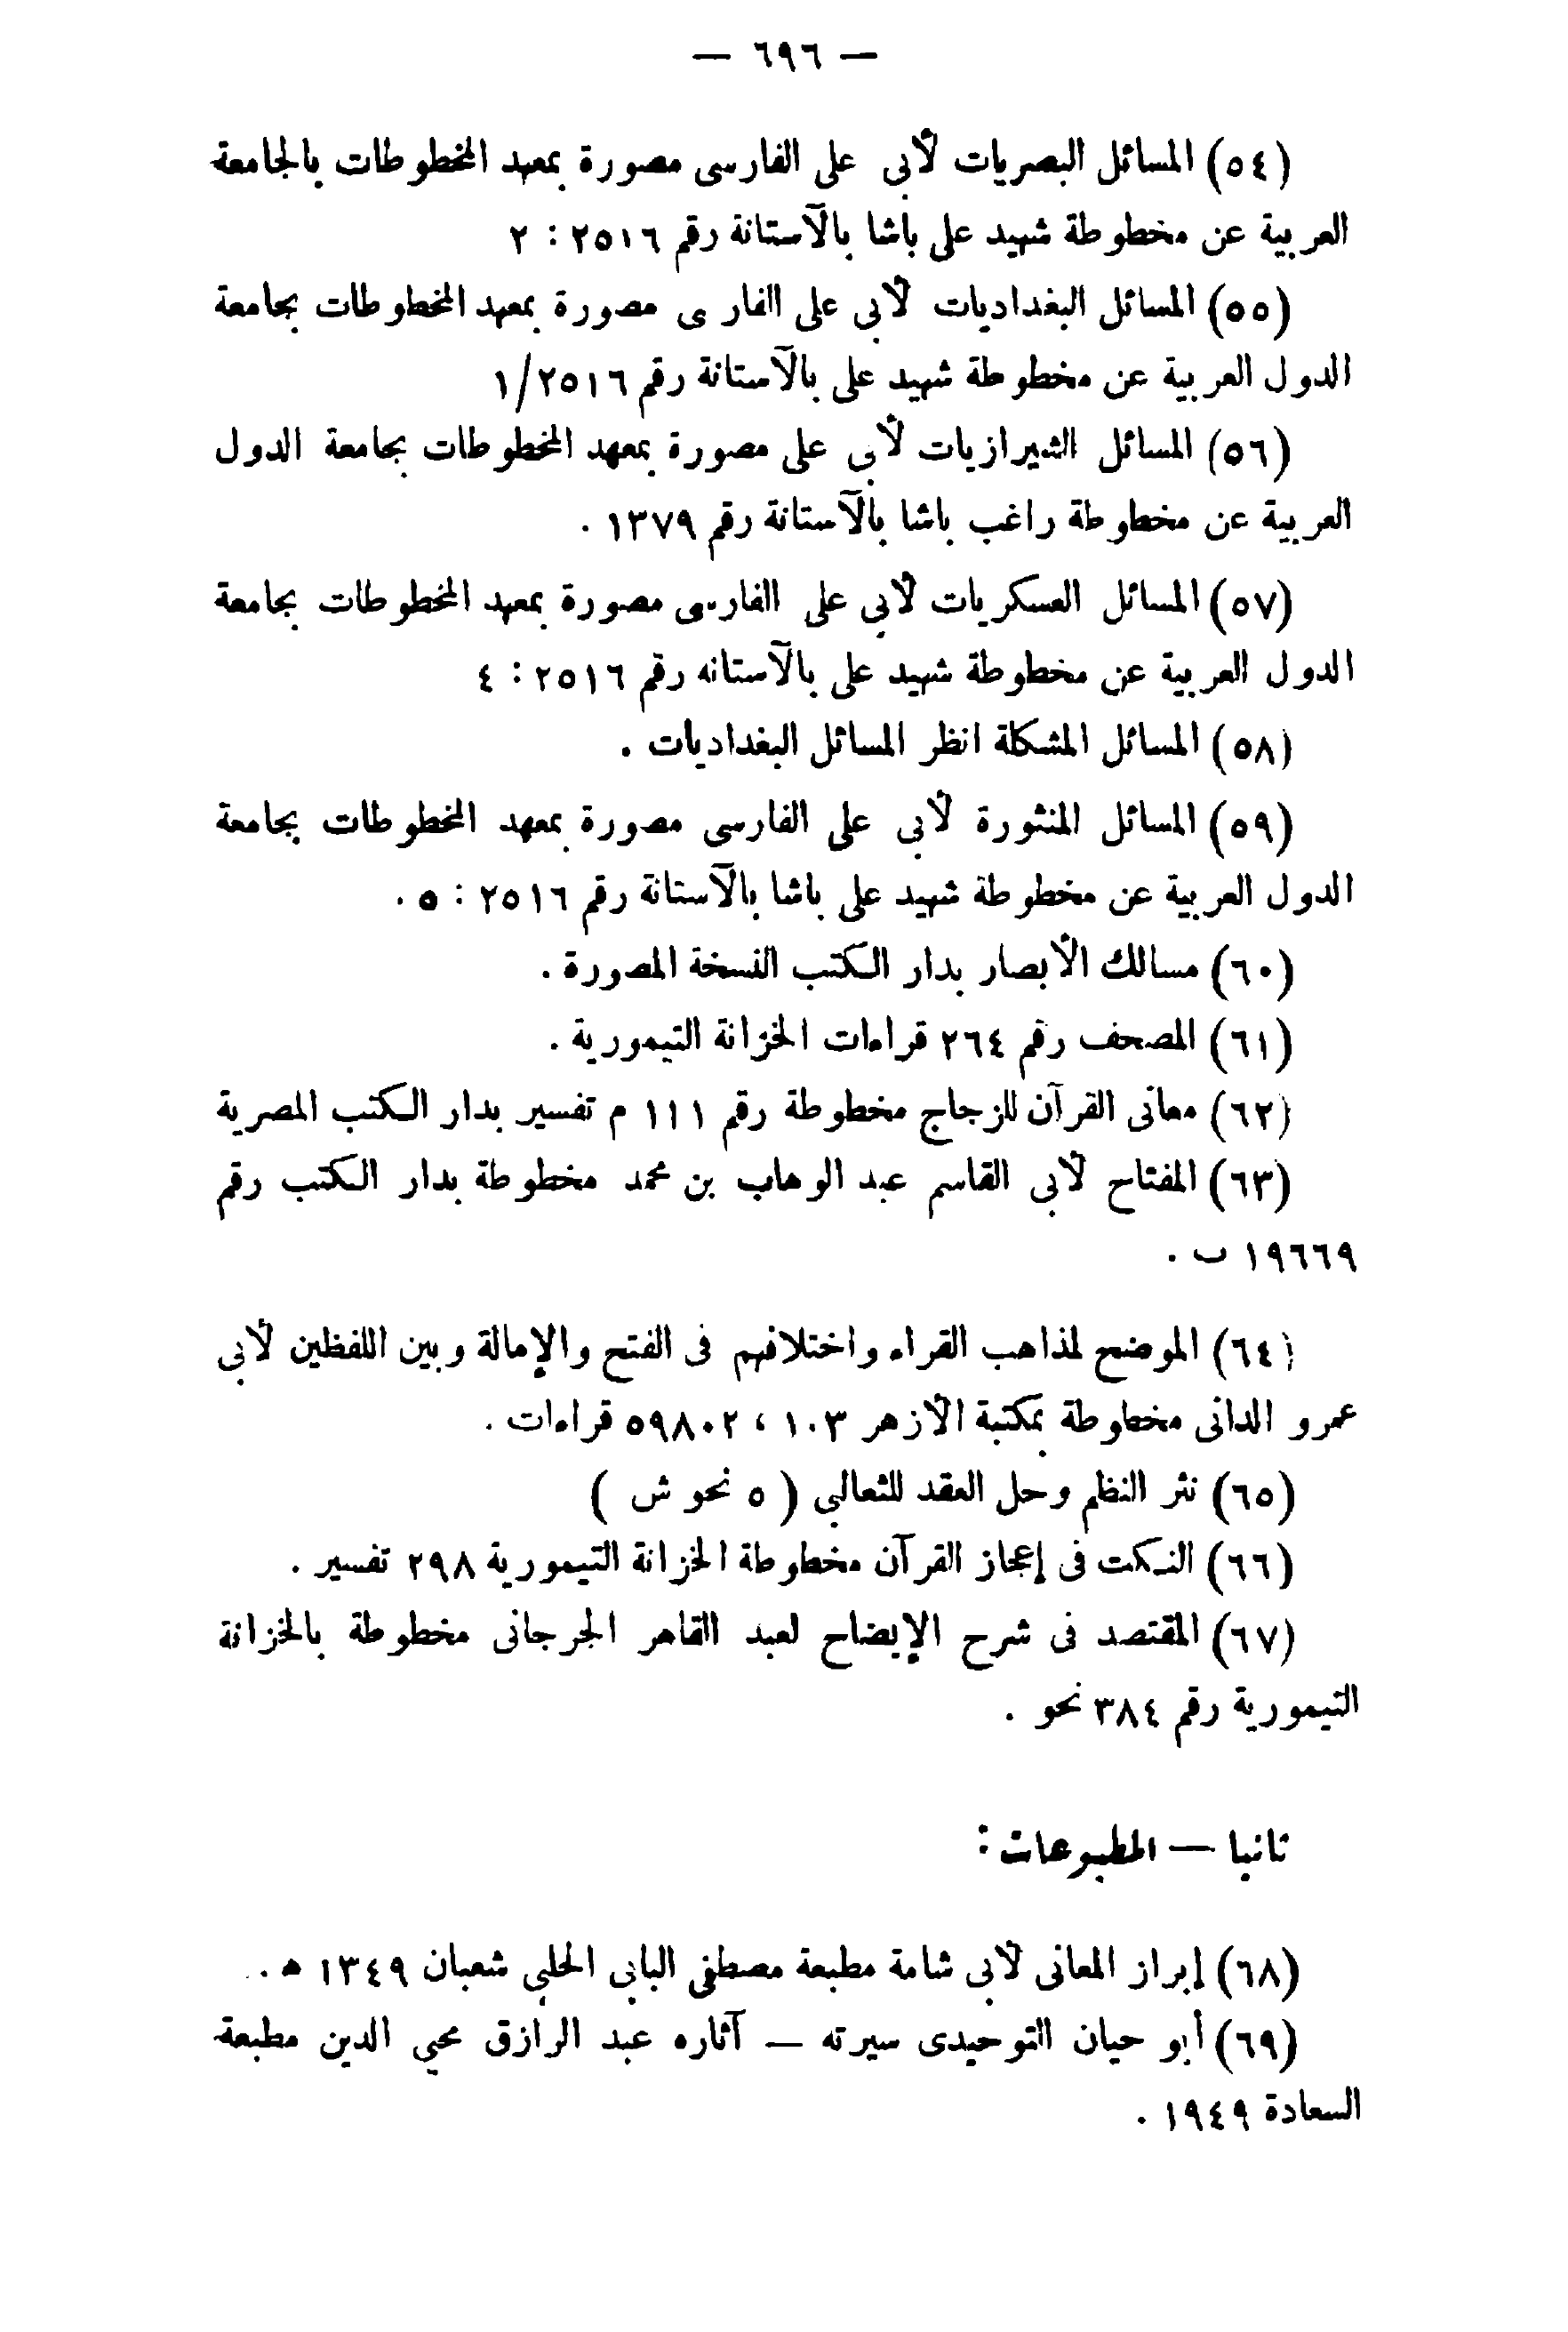 — ٦٩٦ —
(٥٤) المسائل البصريات لأبى على الفارسى مصورة بمعهد المخطوطات بالجامعة
العربية عن مخطوطة شهيد على باشا بالآستانة رقم ٢٥١٦ : ٢
(٥٥) المسائل البغداديات لأبى على الفار ى مصورة بمعهد المخطوطات بجامعة
الدول العربية عن مخطوطة شهيد على بالآستانة رقم ٢٥١٦/١
(٥٦) المسائل الشيرازيات لأبى على مصورة بمعهد المخطوطات بجامعة الدول
العربية عن مخطوطة راغب باشا بالآستانة رقم ١٣٧٩ .
(٥٧) المسائل العسكريات لأبى على الفارسى مصورة بمعهد المخطوطات بجامعة
الدول العربية عن مخطوطة شهيد على بالآستانه رقم ٢٥١٦ : ٤
(٥٨) المسائل المشكلة انظر المسائل البغداديات .
(٥٩) المسائل المنثورة لأبى على الفارسى مصورة بمعهد المخطوطات بجامعة
الدول العربية عن مخطوطة شهيد على باشا بالآستانة رقم ٢٥١٦ : ٥ .
(٦٠) مسالك الأبصار بدار الكتب النسخة المصورة .
(٦١) المصحف رقم ٢٦٤ قراءات الخزانة التيمورية .
(٦٢) معانى القرآن للزجاج مخطوطة رقم ١١١ م تفسير بدار الكتب المصرية
(٦٣) المفتاح لأبى القاسم عبد الوهاب بن محمد مخطوطة بدار الكتب رقم
١٩٦٦٩ ب .
(٦٤) الموضح لمذاهب القراء واختلافهم فى الفتح والإمالة وبين اللفظين لأبى
عمرو الدانى مخطوطة بمكتبة الأزهر ١٠٣ ، ٥٩٨٠٢ قراءات .
(٦٥) نثر النظم وحل العقد للثعالبى ( ٥ نحو ش )
(٦٦) النكت فى إعجاز القرآن مخطوطة الخزانة التيمورية ٢٩٨ تفسير .
(٦٧) المقتصد فى شرح الإيضاح لعبد القاهر الجرجانى مخطوطة بالخزانة
التيمورية رقم ٣٨٤ نحو .
ثانيا — المطبوعات :
(٦٨) إبراز المعانى لأبى شامة مطبعة مصطفى البابى الحلبى شعبان ١٣٤٩ ه .
(٦٩) أبو حيان التوحيدى سيرته — آثاره عبد الرازق محيي الدين مطبعة
السعادة ١٩٤٩ .